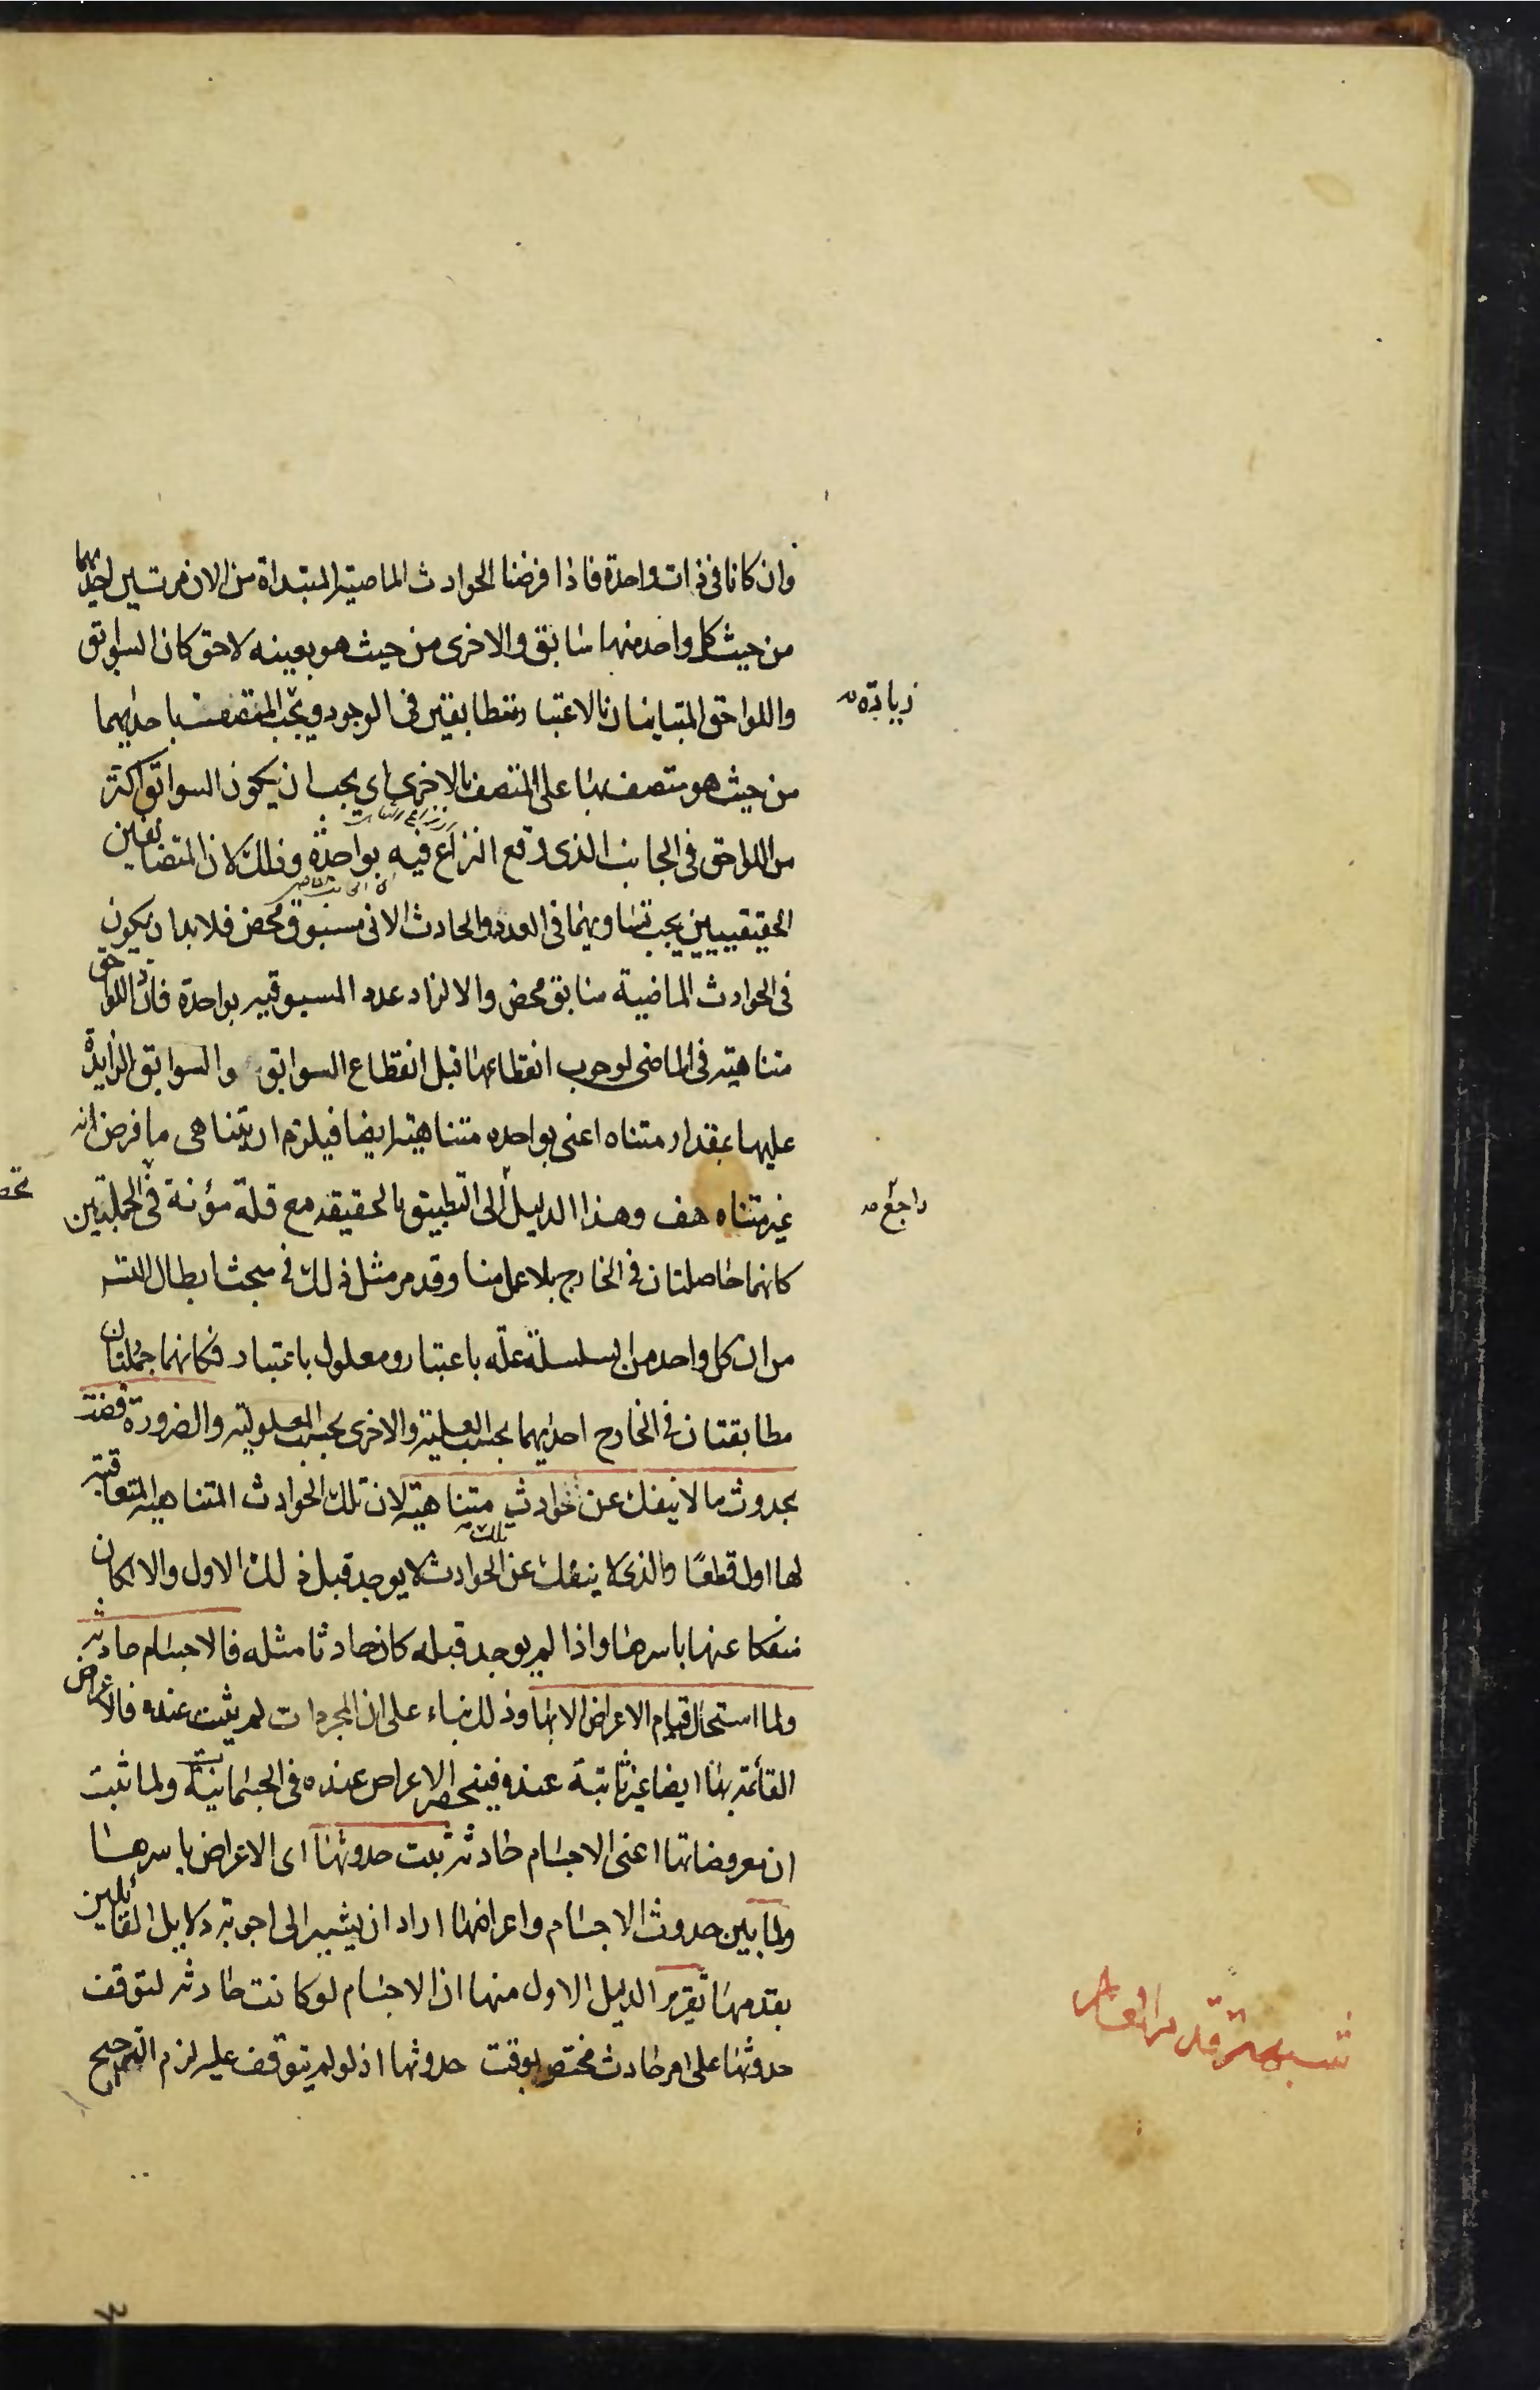 وان كانا فى ذات واحدة فاذا فرضنا الحوادث الماضية المبتدأة من الان مرتين احديهما
من حيث كل واحد منها سابق والاخرى من حيث هو بعينه لاحق كان السوابق
واللواحق المتباينان بالاعتبار متطابقتين فى الوجود ويجب المتصف باحديهما
زيادة
من حيث هو متصف بها على المتصف بالاخرى اى يجب ان يكون السوابق اكثر
من اللواحق فى الجانب الذى وقع النزاع فيه بواحدة وذلك لان المتضايفين
الحقيقيين يجب تساويهما فى العدد والحادث الانى مسبوق محض فلا بد ان يكون
فى الحوادث الماضية سابق محض والا لزاد عدد المسبوقية بواحدة فاذن اللواحق
متناهية فى الماضى لوجوب انقطاعها قبل انقطاع السوابق والسوابق الزايدة
عليها بمقدار متناه اعنى بواحده متناهية ايضا فيلزم ان يتناهى ما فرض انه
غير متناه هف وهذا الدليل الى التطبيق بالحقيقه مع قلة مؤنة فى الجملتين
راجع
كانهما حاصلتان فى الخارج بلا عمل منا وقد مر مثل ذلك فى مبحث ابطال التسـ
من ان كل واحد من السلسلة علة باعتبار ومعلول باعتبار فكانهما جملتان
مطابقتان فى الخارج احديهما بحسب العلية والاخرى بحسب المعلولية والضرورة قضت
بحدوث ما لا ينفك عن حوادث متناهية لان تلك الحوادث المتناهية المتعاقبة
لها اول قطعا والذى لا ينفك عن تلك الحوادث لا يوجد قبل ذلك الاول والا لكان
منفكا عنها باسرها واذا لم يوجد قبله كان حادثا مثله فالاجسام حادثة
ولما استحال قيام الاعراض الا بها وذلك بناء على ان المجردات لم يثبت عنده فالاعراض
القائمة بها ايضا غير ثابتة عنده فينحصر الاعراض عنده فى الجسمانية ولما ثبت
ان معروضاتها اعنى الاجسام حادثة ثبت حدوثها اى الاعراض باسرها
ولما بين حدوث الاجسام واعراضها اراد ان يشير الى اجوبة دلايل القائلين
بقدمها تقرير الدليل الاول منها ان الاجسام لو كانت حادثة لتوقف
حدوثها على امر حادث مختص بوقت حدوثها اذ لو لم يتوقف عليه لزم الترجيح
شبهة قدم العالم